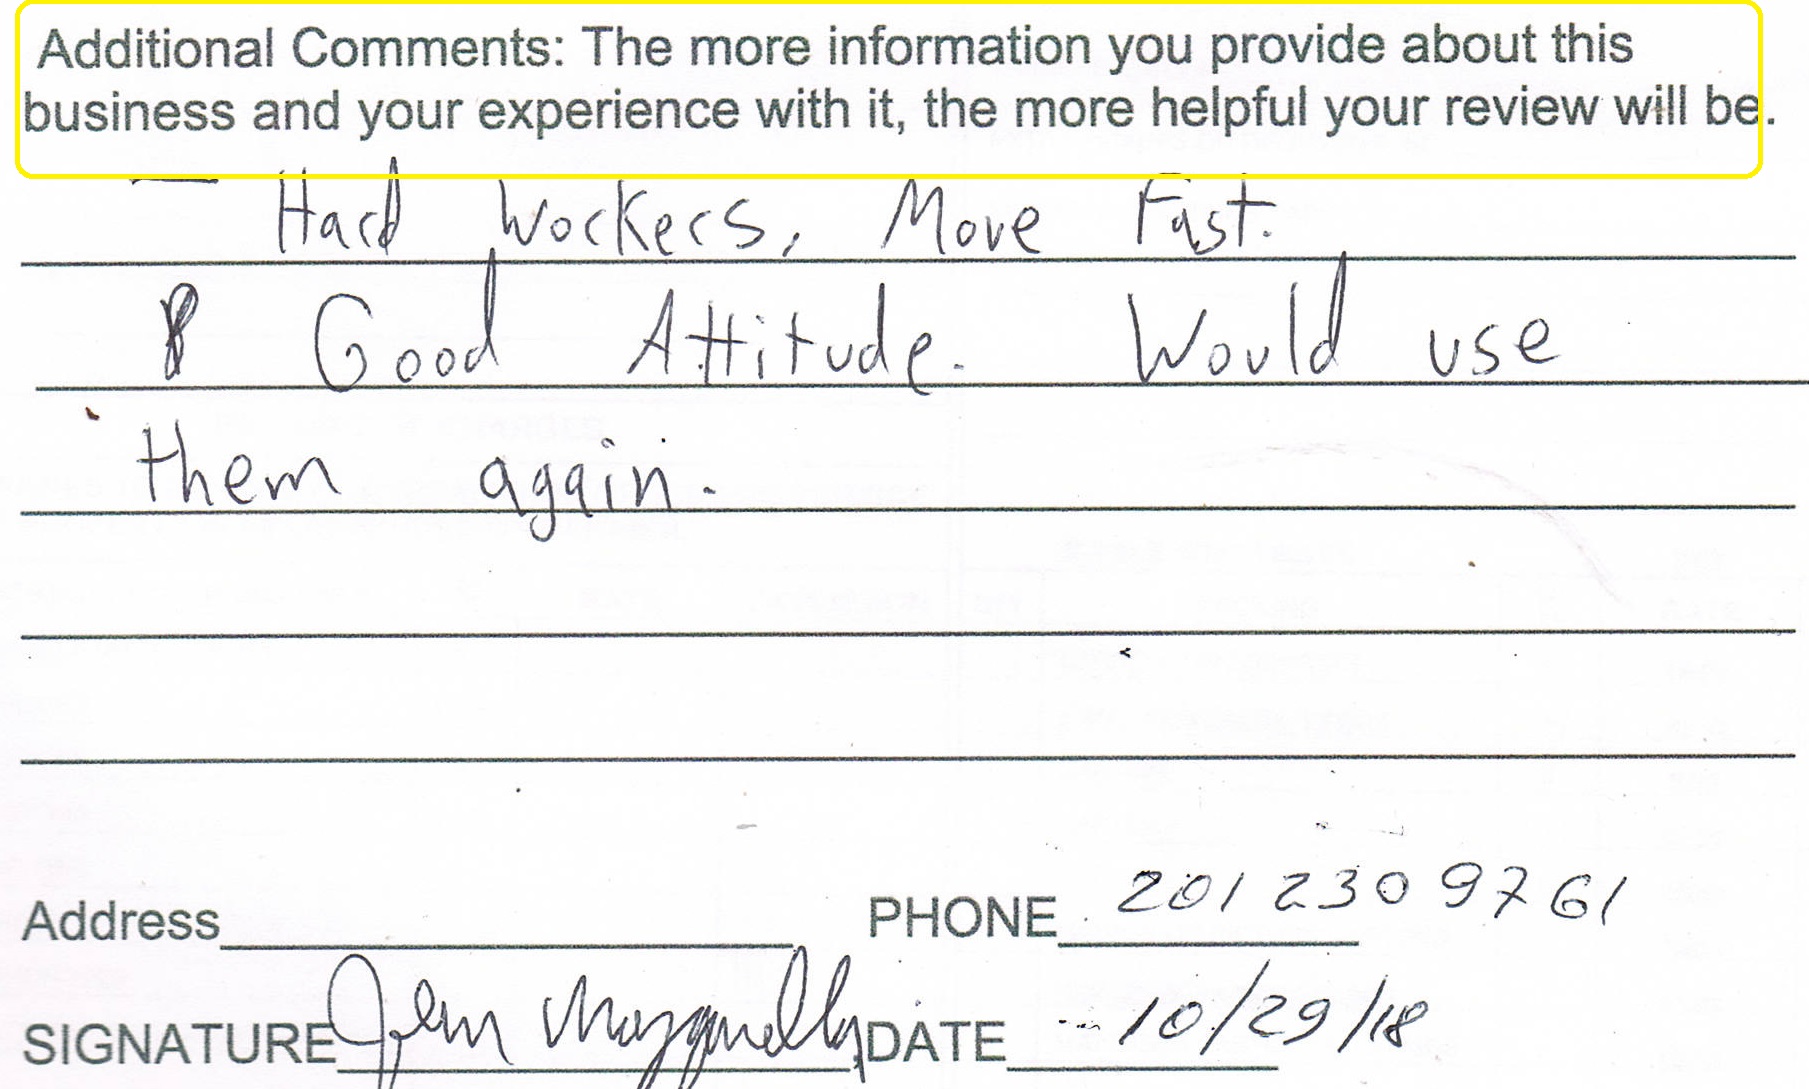 Additional Comments: The more information you provide about this
business and your experience with it, the more helpful your review will be.
Hard Workers, Move Fast.
& Good Attitude. Would use
them again.
Address PHONE 201 230 9761
SIGNATURE Jem DATE 10/29/18